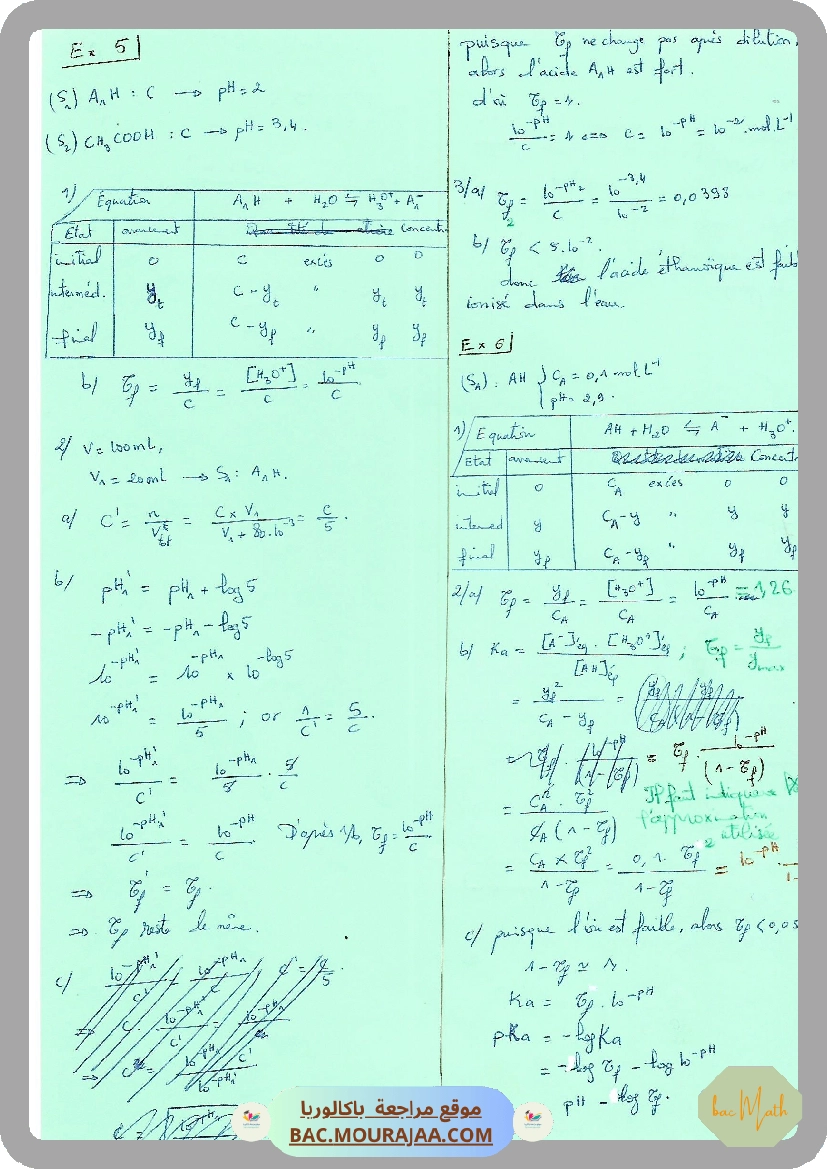 Ex 5
(S₁) A₁H : C → pH = 2
(S₂) CH₃COOH : C → pH = 3,4.
1)
Equation A₁H + H₂O ⇆ H₃O⁺ + A₁⁻
Etat avancement Concent
initial 0 C excès 0 0
interméd. y_t C - y_t " y_t y_t
final y_f C - y_f " y_f y_f
b/ τ_f = y_f/C = [H₃O⁺]/C = 10^-pH/C
2/ V = 100mL,
V₁ = 20mL → S₁ : A₁H.
a/ C' = n/V_tot = C × V₁/V₁ + 80.10⁻³ = C/5.
b/ pH₁' = pH₁ + log5
-pH₁' = -pH₁ - log5
10^-pH₁' = 10^-pH₁ × 10^-log5
10^-pH₁' = 10^-pH₁/5 ; or 1/C' = 5/C.
⇒ 10^-pH₁'/C' = 10^-pH₁/5 · 5/C
10^-pH₁'/C' = 10^-pH/C D'après 1/b, τ_f = 10^-pH/C
⇒ τ_f' = τ_f.
⇒ τ_f reste le même.
c/
puisque τ_f ne change pas après dilution,
alors l'acide A₁H est fort.
d'où τ_f = 1.
10^-pH/C = 1 ⇔ C = 10^-pH = 10⁻² mol.L⁻¹
3/a/ τ_f₂ = 10^-pH₂/C = 10^-3,4/10⁻² = 0,0398
b/ τ_f < 5.10⁻².
donc l'acide éthanoïque est faib
ionisé dans l'eau.
Ex 6
(S_A) : AH { C_A = 0,1 mol L⁻¹
pH = 2,9.
1)
Equation AH + H₂O ⇆ A⁻ + H₃O⁺.
Etat avancement Concent
initial 0 C_A excès 0 0
intermed y C_A - y " y y
final y_f C_A - y_f " y_f y_f
2/a/ τ_f = y_f/C_A = [H₃O⁺]/C_A = 10^-pH/C_A = 1,26
b/ Ka = [A⁻]éq · [H₃O⁺]éq/[AH]éq ; τ_f = y_f/y_max
= y_f²/C_A - y_f =
= τ_f · 10^-pH/(1 - τ_f)
= C_A² · τ_f²/C_A (1 - τ_f)
Il faut indiquer
l'approximation
utilisée
= C_A × τ_f²/1 - τ_f = 0,1 · τ_f²/1 - τ_f = 10^-pH ·
c/ puisque l'ion est faible, alors τ_f < 0,05
1 - τ_f ≃ 1.
Ka = τ_f · 10^-pH
pKa = -logKa
= -log τ_f - log 10^-pH
pH - log τ_f.
موقع مراجعة باكالوريا
BAC.MOURAJAA.COM
bac Math